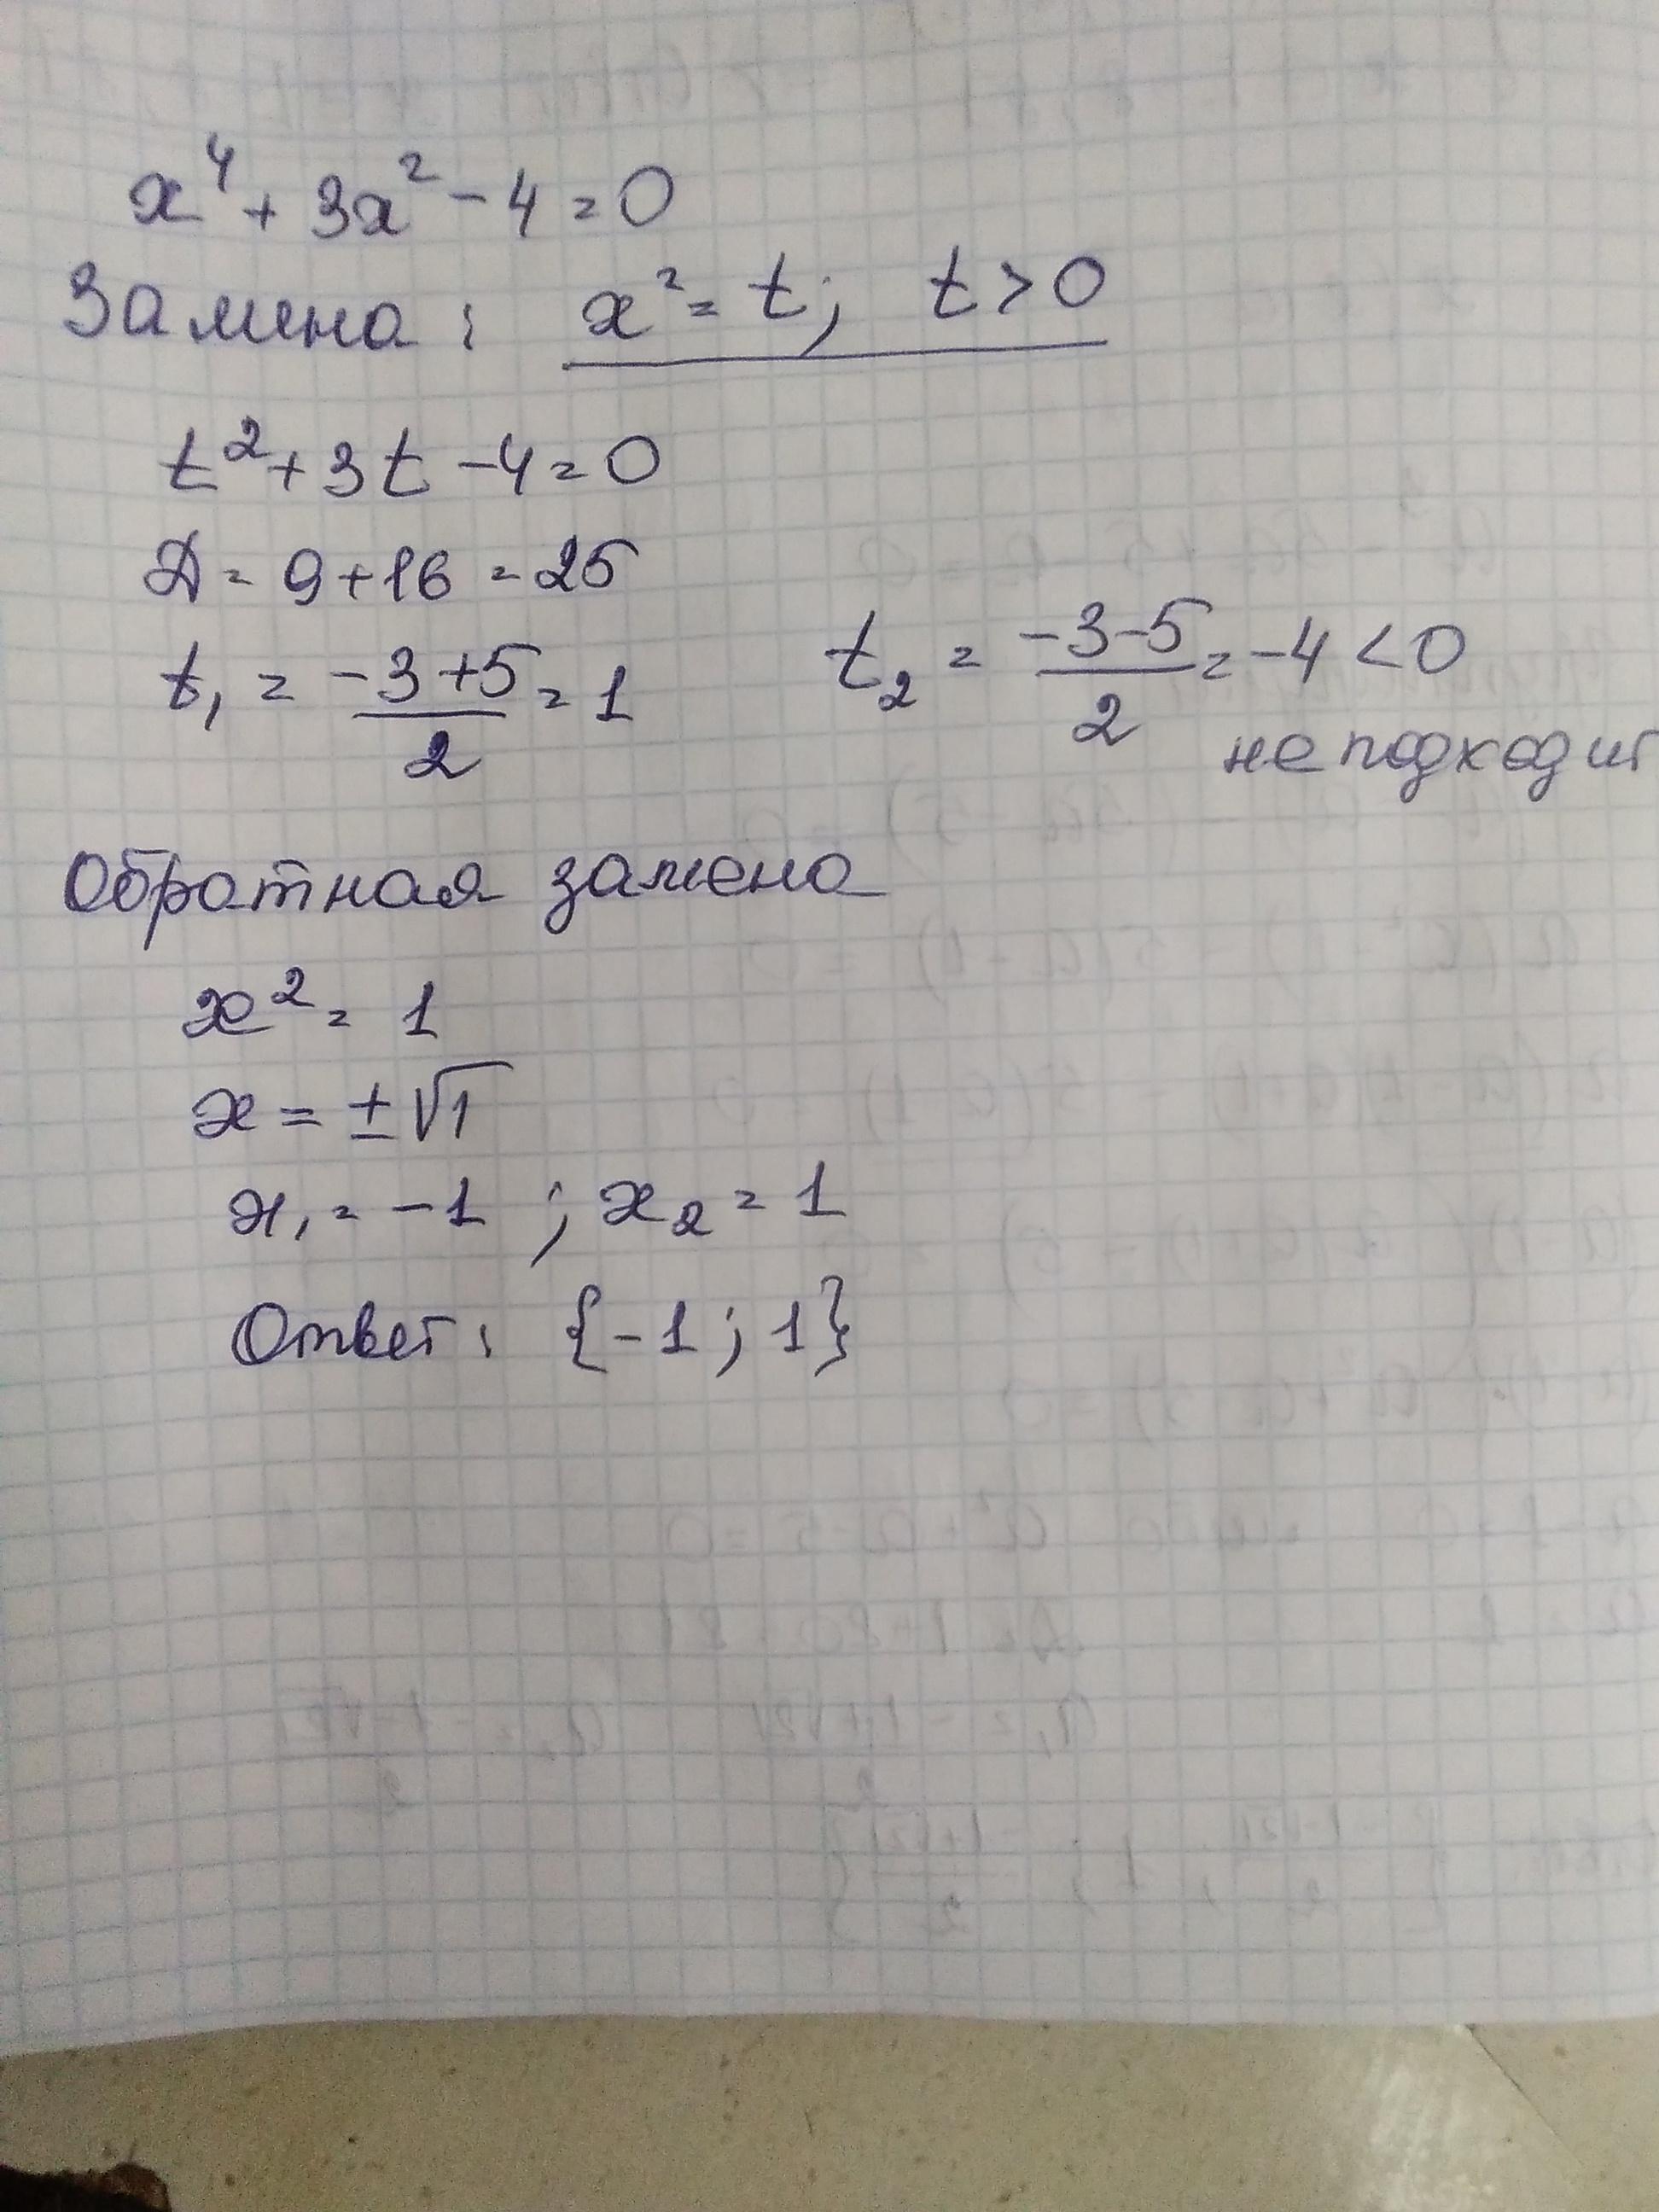 x⁴ + 3x² - 4 = 0
Замена: x² = t; t > 0
t² + 3t - 4 = 0
D = 9 + 16 = 25
t₁ = (-3+5)/2 = 1 t₂ = (-3-5)/2 = -4 < 0
не подходит
Обратная замена
x² = 1
x = ±√1
x₁ = -1 ; x₂ = 1
Ответ: {-1; 1}